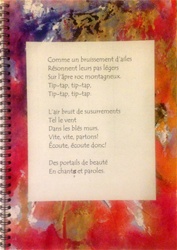 Comme un bruissement d'ailes
Résonnent leurs pas légers
Sur l'âpre roc montagneux.
Tip-tap, tip-tap,
Tip-tap, tip-tap.
L'air bruit de susurrements
Tel le vent
Dans les blés murs.
Vite, vite, partons!
Écoute, écoute donc!
Des portails de beauté
En chants et paroles